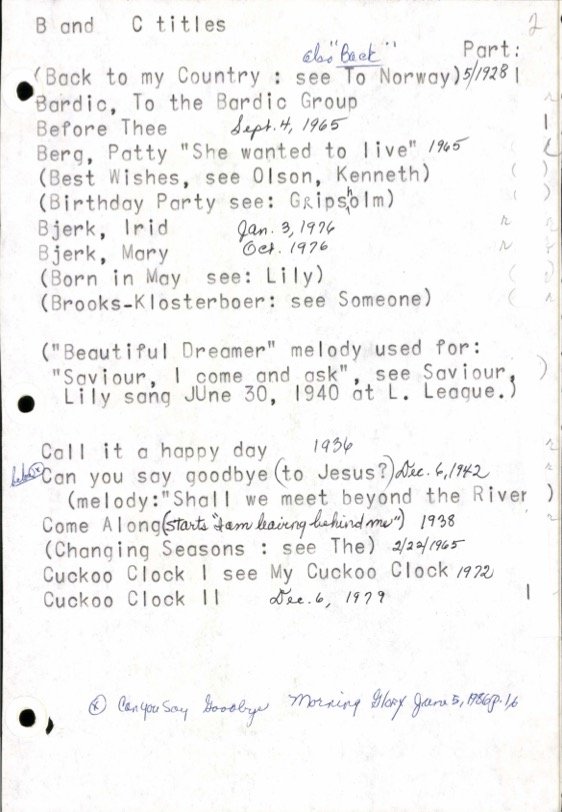 B and C titles 2
also "Back" Part:
(Back to my Country : see To Norway) 5/1928 1
Bardic, To the Bardic Group
Before Thee Sept. 4, 1965 1
Berg, Patty "She wanted to live" 1965
(Best Wishes, see Olson, Kenneth) ( )
(Birthday Party see: Gripsholm) ( )
Bjerk, Irid Jan. 3, 1976 r
Bjerk, Mary Oct. 1976 r
(Born in May see: Lily)
(Brooks-Klosterboer: see Someone)
("Beautiful Dreamer" melody used for:
"Saviour, I come and ask", see Saviour, )
Lily sang JUne 30, 1940 at L. League.)
Call it a happy day 1936
below Can you say goodbye (to Jesus?) Dec. 6, 1942
(melody:"Shall we meet beyond the River )
Come Along (starts "I am leaving behind me") 1938
(Changing Seasons : see The) 2/22/1965
Cuckoo Clock I see My Cuckoo Clock 1972
Cuckoo Clock II Dec. 6, 1979 1
(x) Can You Say Goodbye Morning Glory June 5, 1986 p. 16